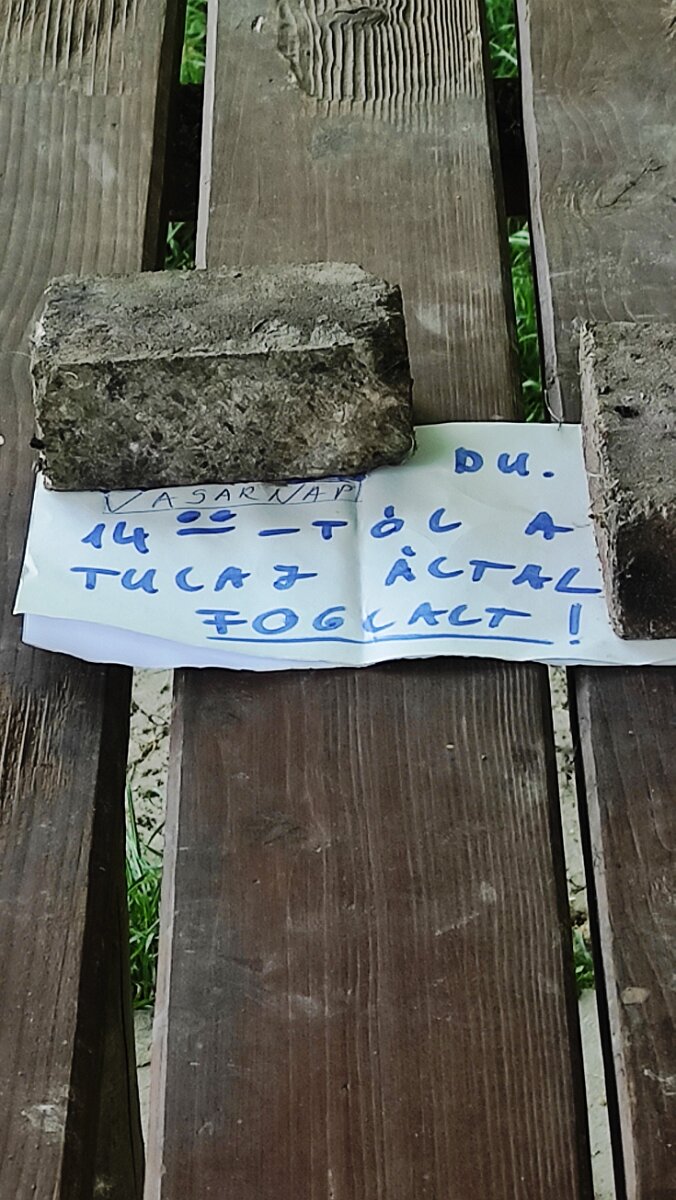 DU.
VASÁRNAP
14 00 -TÓL A
TULAJ ÁLTAL
FOGLALT!